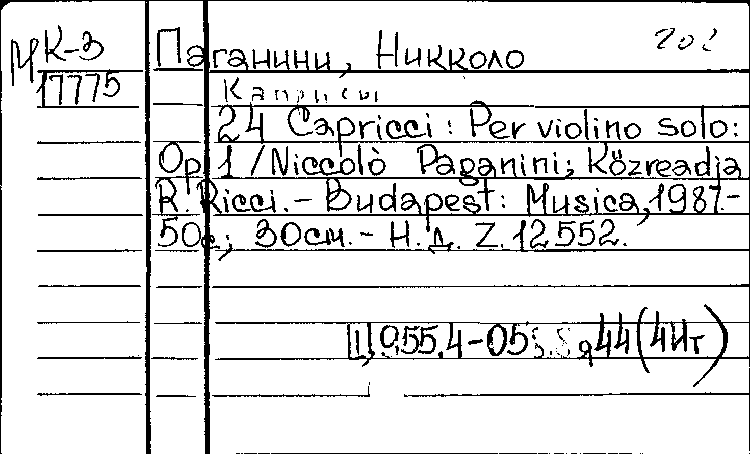 МК-3 Паганини, Никколо 202
17775 Каприсы
24 Capricci : Per violino solo:
Op. 1 / Niccolò Paganini; Közreadja
R. Ricci. - Budapest: Musica, 1987. -
50с.; 30см. - Н. д. Z. 12552.
Щ955.4-05 я44(4Ит)